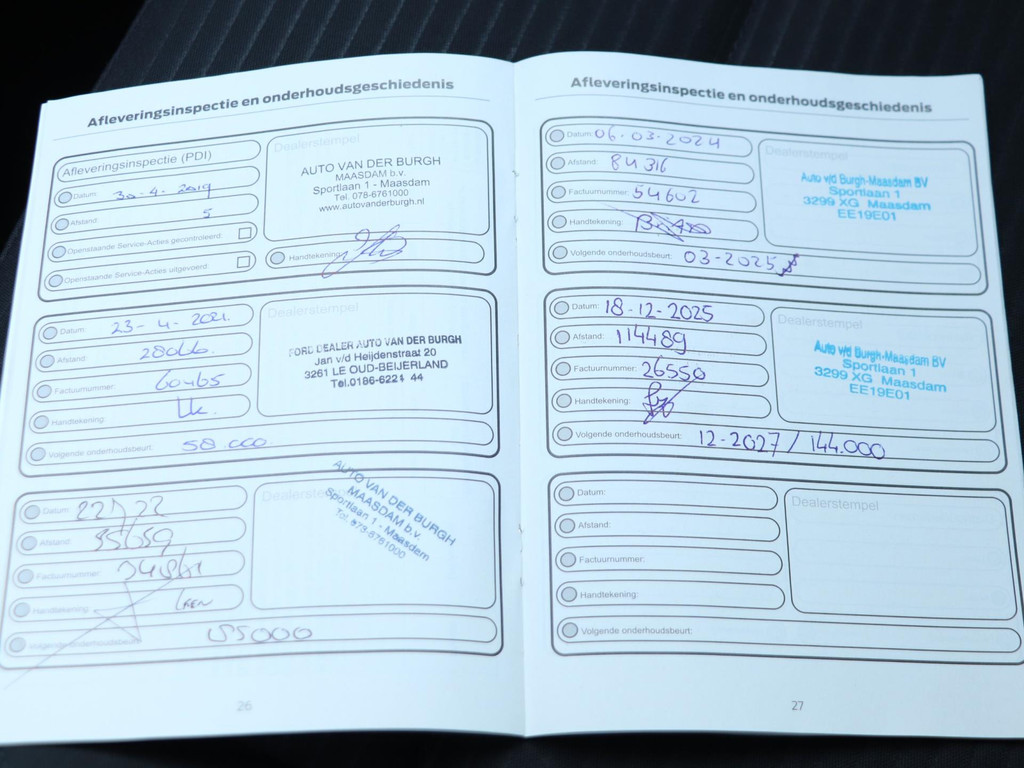 Afleveringsinspectie en onderhoudsgeschiedenis
Afleveringsinspectie (PDI)
Datum: 30-4-2019
Afstand: 5
Openstaande Service-Acties gecontroleerd:
Openstaande Service-Acties uitgevoerd:
Dealerstempel
AUTO VAN DER BURGH
MAASDAM b.v.
Sportlaan 1 - Maasdam
Tel. 078-6761000
www.autovanderburgh.nl
Handtekening:
Datum: 23-4-2021.
Afstand:
Factuurnummer: 60465
Handtekening:
Volgende onderhoudsbeurt: 58 000.
Dealerstempel
FORD DEALER AUTO VAN DER BURGH
Jan v/d Heijdenstraat 20
3261 LE OUD-BEIJERLAND
Tel.0186-6221 44
Datum:
Afstand: 55659
Factuurnummer:
Handtekening:
Volgende onderhoudsbeurt:
Dealerstempel
AUTO VAN DER BURGH
MAASDAM b.v.
Sportlaan 1 - Maasdam
Tel. 078-6761000
26
Afleveringsinspectie en onderhoudsgeschiedenis
Datum: 06-03-2024
Afstand: 84316
Factuurnummer: 54602
Handtekening:
Volgende onderhoudsbeurt: 03-2025
Dealerstempel
Auto v/d Burgh-Maasdam BV
Sportlaan 1
3299 XG Maasdam
EE19E01
Datum: 18-12-2025
Afstand: 114489
Factuurnummer: 26550
Handtekening:
Volgende onderhoudsbeurt: 12-2027 / 144.000
Dealerstempel
Auto v/d Burgh-Maasdam BV
Sportlaan 1
3299 XG Maasdam
EE19E01
Datum:
Afstand:
Factuurnummer:
Handtekening:
Volgende onderhoudsbeurt:
Dealerstempel
27